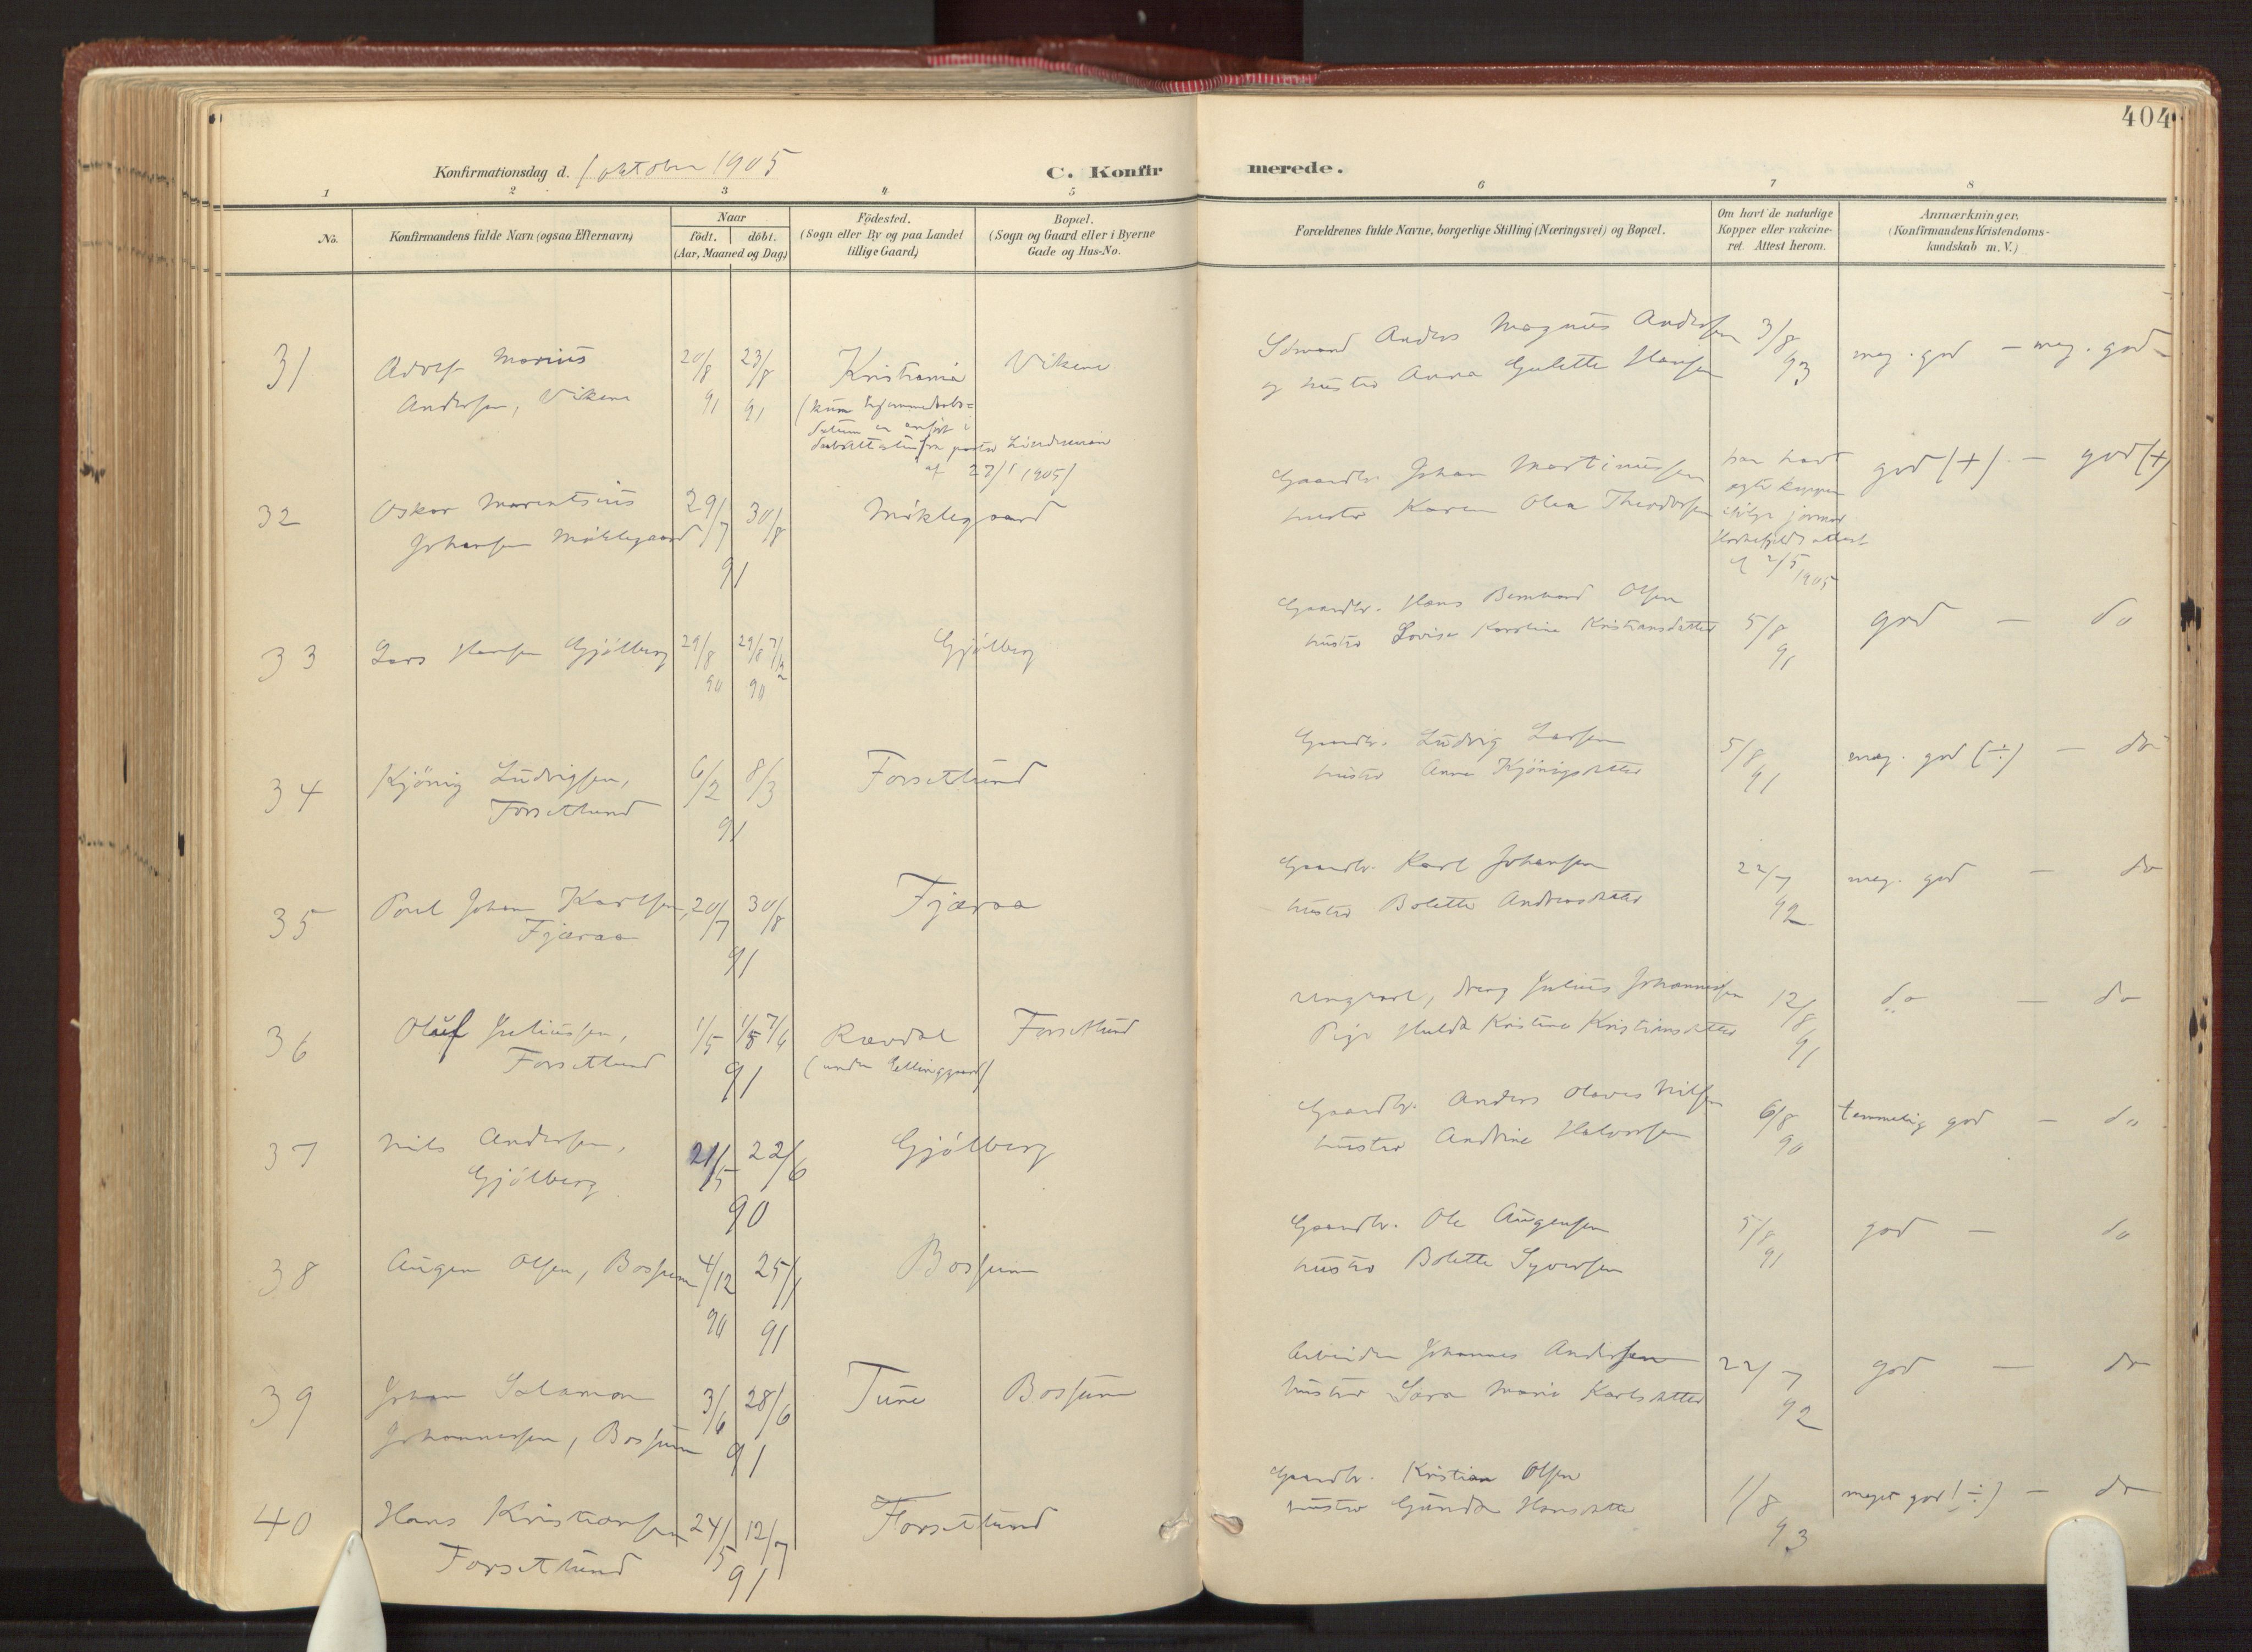 404
Konfirmationsdag d. 1 oktober 1905
C. Konfirmerede.
1 2 3 4 5 6 7 8
No.
Konfirmandens fulde Navn (ogsaa Efternavn)
Naar
födt. döbt.
(Aar, Maaned og Dag)
Födested.
(Sogn eller By og paa Landet
tillige Gaard)
Bopæl.
(Sogn og Gaard eller i Byerne
Gade og Hus-No.
Forældrenes fulde Navne, borgerlige Stilling (Næringsvei) og Bopæl.
Om havt de naturlige
Kopper eller vakcine-
ret. Attest herom.
Anmærkninger.
(Konfirmandens Kristendoms-
kundskab m. V.)
31 Adolf Marius 20/8 23/8 Kristiania Vikene
Andersen, Vikene 91 91 (kun hjemmedaabs=
datum er anført i
daabsattesten fra pastor Lindeman
af 27/1 1905)
Edvard Anders Magnus Andersen 3/8 meg. god — meg. god
og hustru Anna Gulette Hansen 93
32 Oskar Marentsius 29/7 30/8 Møklegaard
Johansen Møklegaard 91
Gaardbr. Johan Martinussen har havt god (+) — god (+)
hustru Karen Olea Theodorsen ægte kopper
ifølge jormor
attest
af 2/5 1905
33 Lars Hansen Gjølberg 29/8 29/8 7/12 Gjølberg
90 90
Gaardbr. Hans Bernhard Olsen 5/8 god — do
hustru Lovise Karoline Kristiansdatter 91
34 Kjönig Ludvigsen, 6/2 8/3 Forsetlund
Forsetlund 91
Gaardbr. Ludvig Larsen 5/8 meg. god (÷) — do
hustru Anna Kjönigsdatter 91
35 Poul Johan Karlsen, 20/7 30/8 Fjæraa
Fjæraa 91
Gaardbr. Karl Johansen 22/7 meg. god — do
hustru Bolette Andreasdatter 92
36 Oluf Juliussen, 1/5 1/5 7/6 Rævdal Forsetlund
Forsetlund 91 (under Ellinggaard)
Ungkarl, dreng Julius Johannessen 12/8 do — do
Pige Hulda Kristine Kristiansdatter 91
37 Nils Andersen, 21/5 22/6 Gjølberg
Gjølberg 90
Gaardbr. Anders Olaves Nilsen 6/8 temmelig god — do
hustru Andrine Halvorsen 90
38 Augen Olsen, Bossum 4/12 25/1 Bossum
90 91
Gaardbr. Ole Augensen 5/8 god — do
hustru Bolette Syversen 91
39 Johan Salamon 3/6 28/6 Tune Bossum
Johannessen, Bossum 91
Arbeider Johannes Andersen 22/7 god — do
hustru Sara Marie Karlsdatter 92
40 Hans Kristiansen 24/5 12/7 Forsetlund
Forsetlund 91
Gaardbr. Kristian Olsen 1/8 meget god (÷) — do
hustru Gunda Hansdatter 93